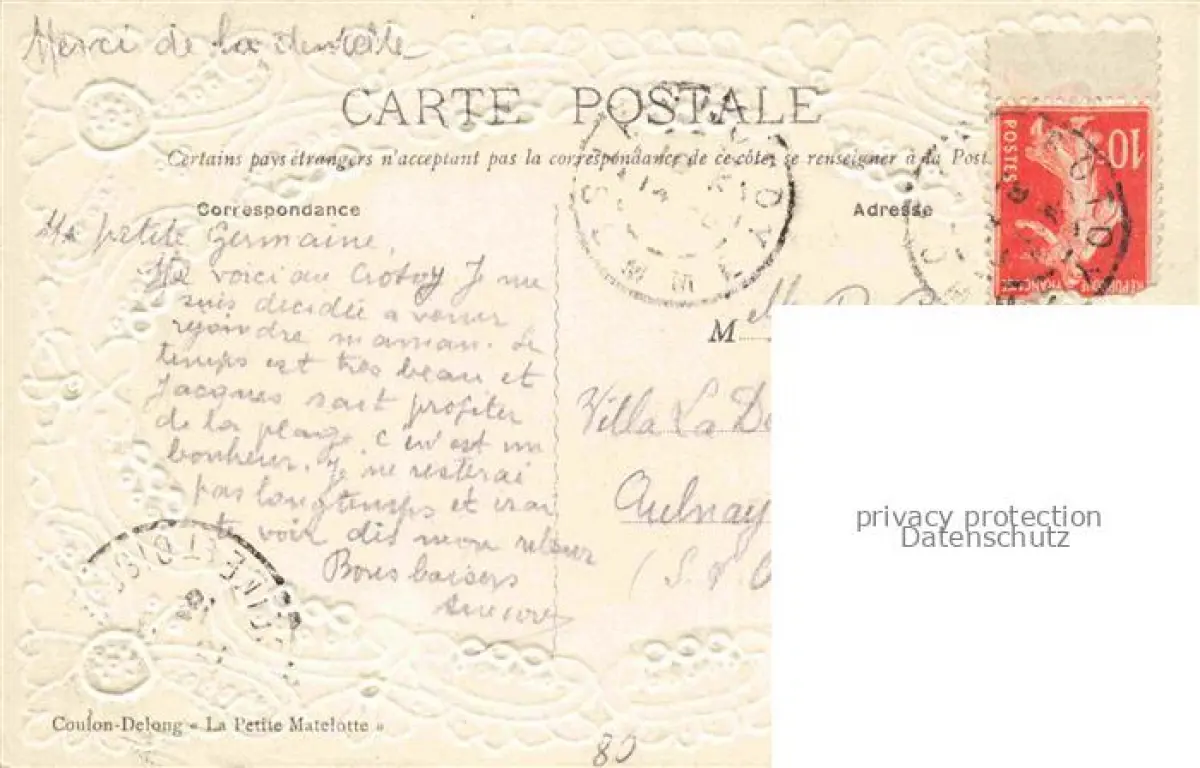 Merci de la dentelle
CARTE POSTALE
Certains pays étrangers n'acceptant pas la correspondance de ce côté, se renseigner à la Post
Correspondance
Adresse
Ma petite Germaine,
Me voici au Crotoy Je me
suis décidée à venir
rejoindre maman. Le
temps est très beau et
Jacques sait profiter
de la plage, c'en est un
bonheur. Je ne resterai
pas longtemps et irai
te voir dès mon retour
Bons baisers
M elle
Villa La D
Aulnay
(S. & O
10c
POSTES
RÉPUBLIQUE FRANÇAISE
CROTOY
SOMME
SEINE ET OISE
privacy protection
Datenschutz
Coulon-Delong « La Petite Matelotte »
80